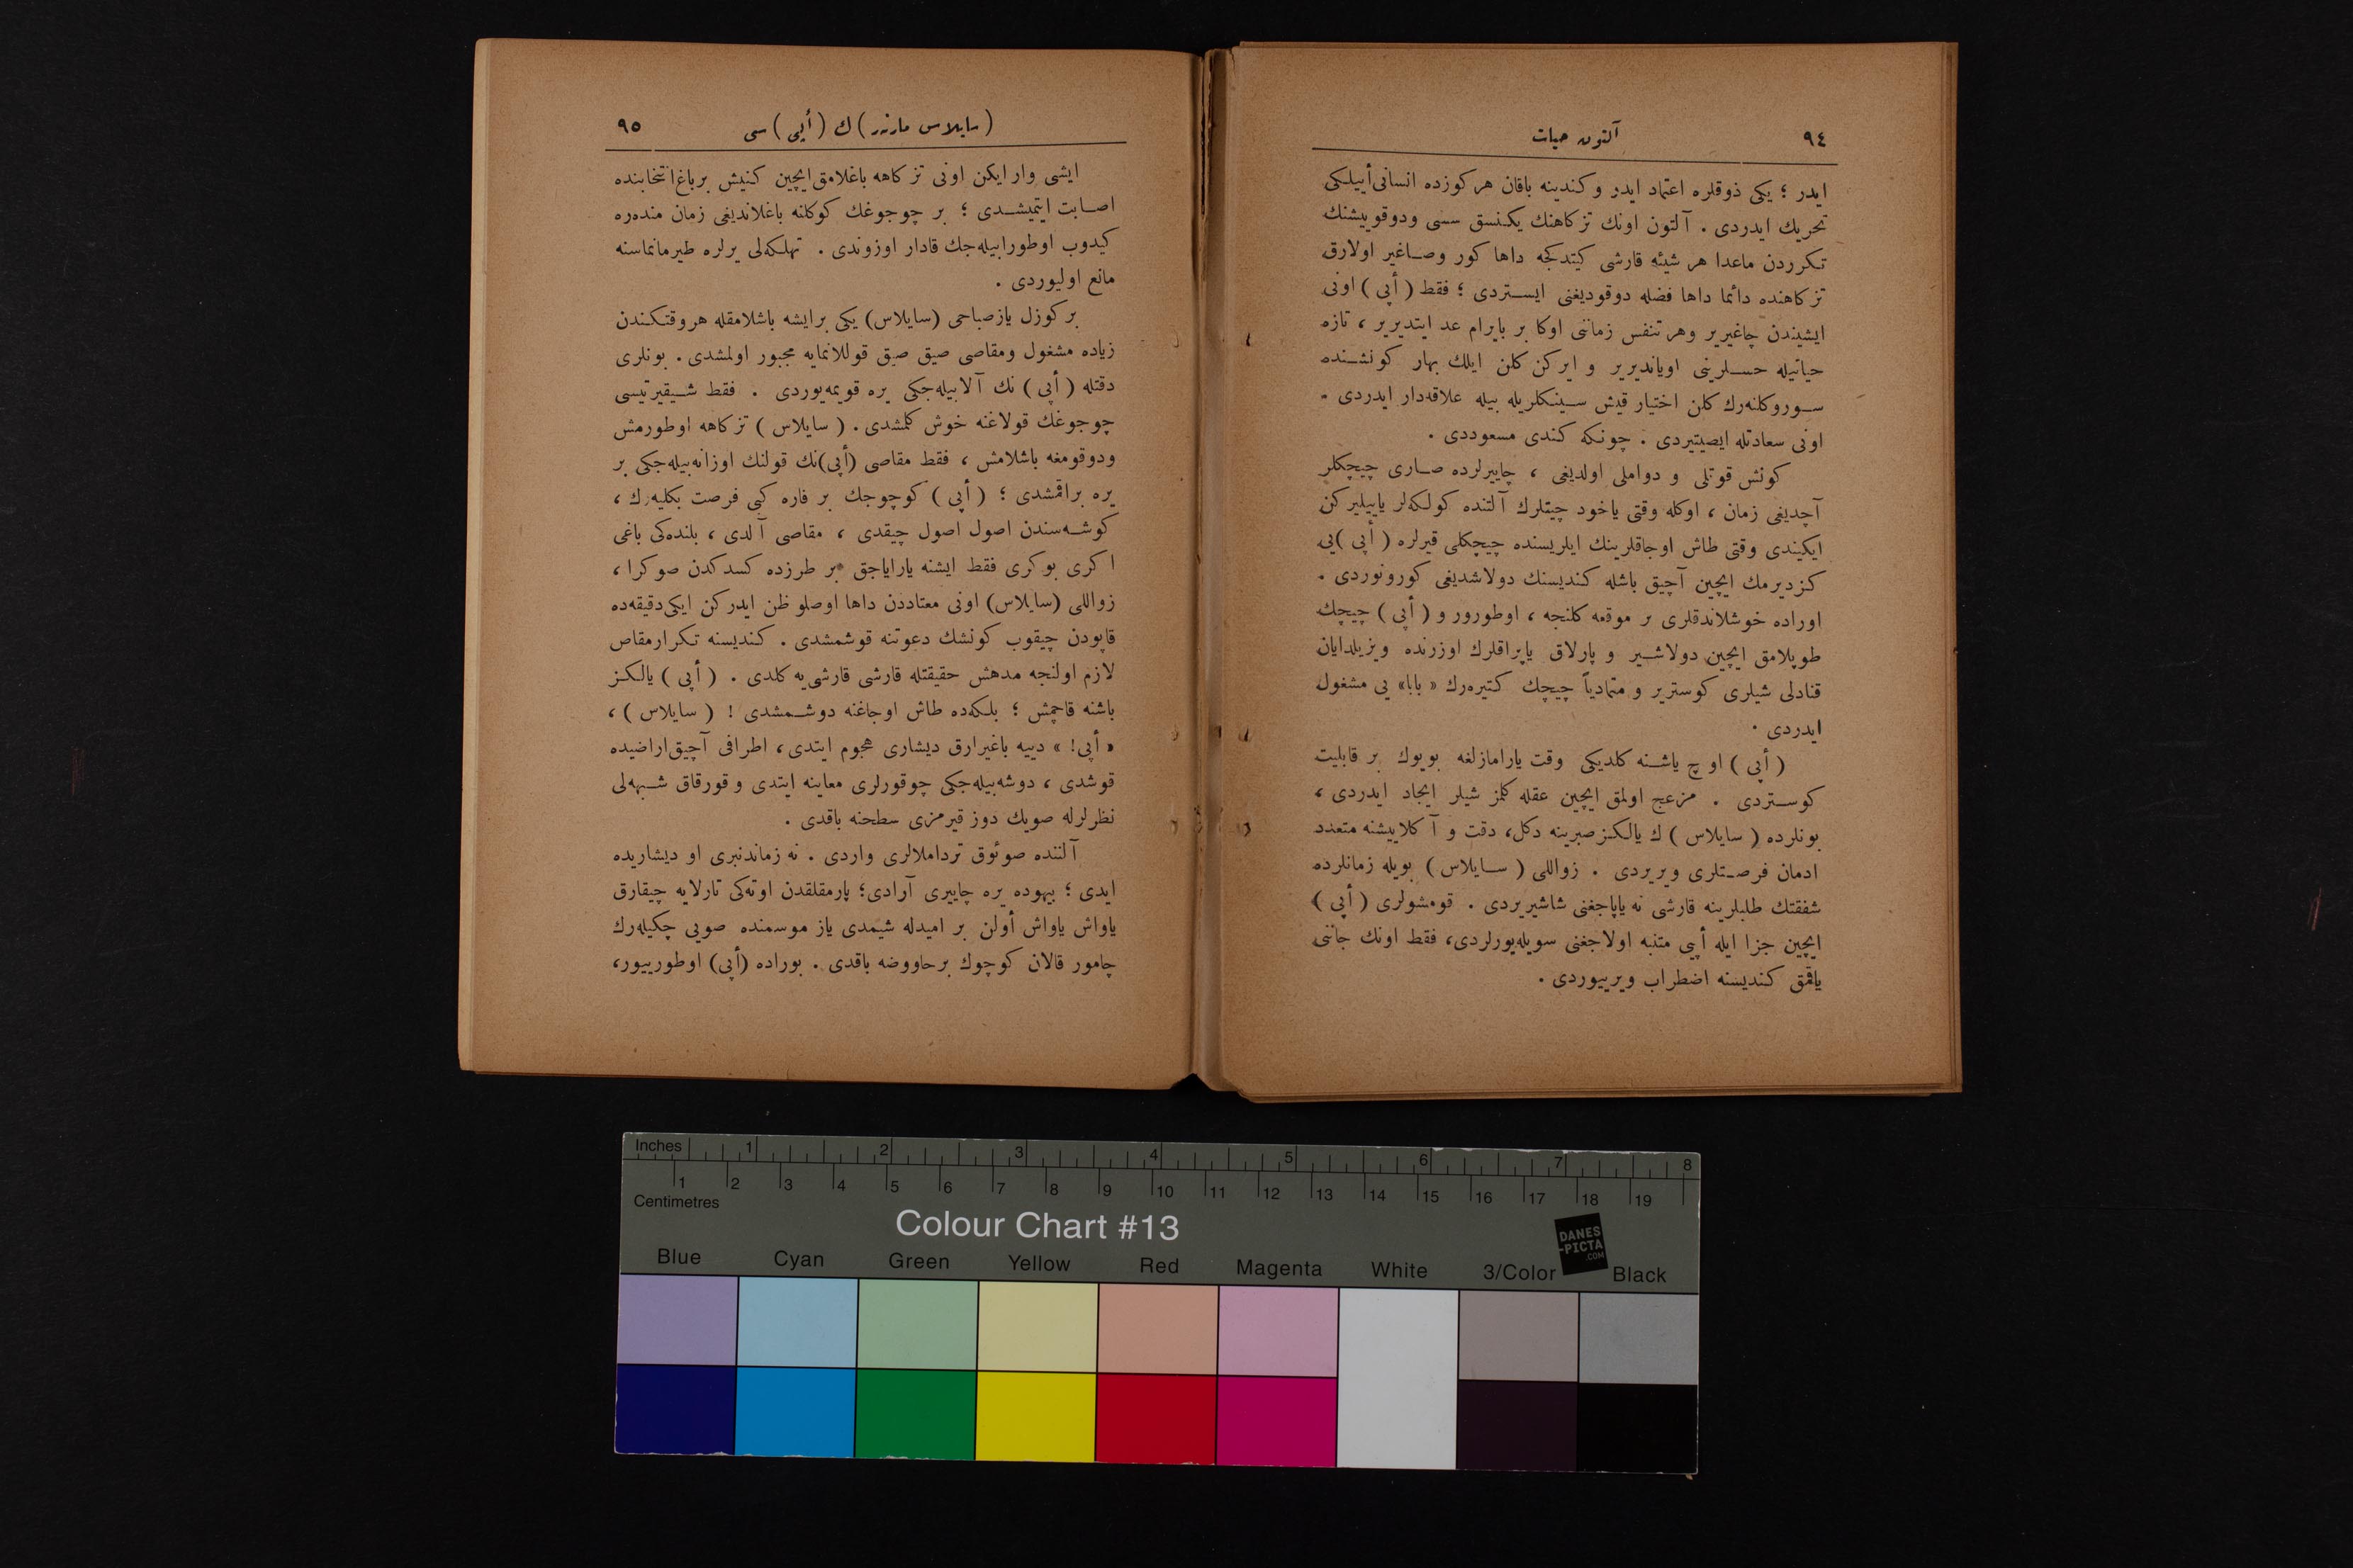 ٩٤
آلتون حیات
ایدر ؛ یکی ذوقلره اعتماد ایدر و کندینه باقان هر کوزده انسانی أییلکی
تحریك ایدردی . آلتون اونك تزکاهنك یکنسق سسی ودوقوییشنك
تکرردن ماعدا هر شیئه قارشی کیتدکجه داها کور وصاغیر اولارق
تزکاهنده دائما داها فضله دوقودیغنی ایستردی ؛ فقط ( أپی ) اونی
ایشیندن چاغیریر وهر تنفس زماننی اوکا بر بایرام عد ایتدیریر ، تازه
حیاتیله حسلرینی اویاندیریر و ایرکن کلن ایلك بهار کونشنده
سوروکلنه‌رك کلن اختیار قیش سینکلریله بیله علاقه‌دار ایدردی .
اونی سعادتله ایصیتیردی . چونکه کندی مسعوددی .
کونش قوتلی و دواملی اولدیغی ، چاییرلرده صاری چیچکلر
آچدیغی زمان ، اوکله وقتی یاخود چیتلرك آلتنده کولکه‌لر یاییلیرکن
ایکیندی وقتی طاش اوجاقلرینك ایلریسنده چیچکلی قیرلره ( أپی )یی
کزدیرمك ایچین آچیق باشله کندیسنك دولاشدیغی کورونوردی .
اوراده خوشلاندقلری بر موقعه کلنجه ، اوطورور و ( أپی ) چیچك
طوپلامق ایچین دولاشیر و پارلاق یاپراقلرك اوزرنده ویزیلدایان
قنادلی شیلری کوستریر و متمادیاً چیچك کتیره‌رك « بابا» یی مشغول
ایدردی .
( أپی ) اوچ یاشنه کلدیکی وقت یارامازلغه بویوك بر قابلیت
کوستردی . مزعج اولمق ایچین عقله کلمز شیلر ایجاد ایدردی ،
بونلرده ( سایلاس )ك یالکز صبرینه دکل، دقت و آ کلاییشنه متعدد
ادمان فرصتلری ویریردی . زواللی ( سایلاس ) بویله زمانلرده
شفقتك طلبلرینه قارشی نه یاپاجغنی شاشیریردی . قومشولری ( أپی )
ایچین جزا ایله أپی متنبه اولاجغنی سویله‌یورلردی، فقط اونك جاننی
یاقمق کندیسنه اضطراب ویرییوردی .
( سایلاس مارنەر ) ك ( أپی ) سی
٩٥
ایشی وار ایکن اونی تزکاهه باغلامق ایچین کنیش بر باغ انتخابنده
اصابت ایتمیشدی ؛ بر چوجوغك کوکلنه باغلاندیغی زمان منده‌ره
کیدوب اوطورابیله‌جك قادار اوزوندی . تهلکه‌لی یرلره طیرمانماسنه
مانع اولیوردی .
بر کوزل یاز صباحی (سایلاس) یکی بر ایشه باشلامقله هروقتکندن
زیاده مشغول ومقاصی صیق صیق قوللانمایه مجبور اولمشدی . بونلری
دقتله ( أپی ) نك آلابیله‌جکی یره قویمه‌یوردی . فقط شیقیرتیسی
چوجوغك قولاغنه خوش کلمشدی . ( سایلاس ) تزکاهه اوطورمش
ودوقومغه باشلامش ، فقط مقاصی (أپی)نك قولنك اوزانه‌بیله‌جکی بر
یره براقمشدی ؛ ( أپی ) کوچوجك بر فاره کبی فرصت بکلیه‌رك ،
کوشه‌سندن اصول اصول چیقدی ، مقاصی آلدی ، بلنده‌کی باغی
ا کری بوکری فقط ایشنه یارایاجق بر طرزده کسدکدن صوکرا ،
زواللی (سایلاس) اونی معتاددن داها اوصلو ظن ایدرکن ایکی‌دقیقه‌ده
قاپودن چیقوب کونشك دعوتنه قوشمشدی . کندیسنه تکرار مقاص
لازم اولنجه مدهش حقیقتله قارشی قارشی‌یه کلدی . ( أپی ) یالکز
باشنه قاچمش ؛ بلکه‌ده طاش اوجاغنه دوشمشدی ! ( سایلاس ) ،
« أپی! » دییه باغیرارق دیشاری هجوم ایتدی، اطرافی آچیق اراضیده
قوشدی ، دوشه‌بیله‌جکی چوقورلری معاینه ایتدی و قورقاق شبهه‌لی
نظرلرله صویك دوز قیرمزی سطحنه باقدی .
آلننده صوئوق ترداملالری واردی . نه زماندنبری او دیشاریده
ایدی ؛ بیهوده یره چاییری آرادی؛ پارمقلقدن اوته‌کی تارلایه چیقارق
یاواش یاواش أولن بر امیدله شیمدی یاز موسمنده صویی چکیله‌رك
چامور قالان کوچوك بر حاووضه باقدی . بوراده (أپی) اوطورییور،
Inches 1 2 3 4 5 6 7 8
1 2 3 4 5 6 7 8 9 10 11 12 13 14 15 16 17 18 19
Centimetres
Colour Chart #13
DANES
-PICTA
.COM
Blue Cyan Green Yellow Red Magenta White 3/Color Black